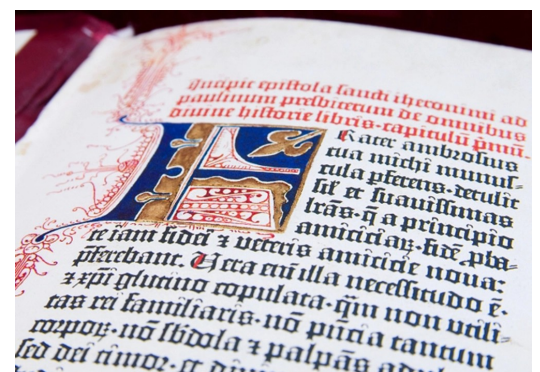 Incipit epistola sancti iheronimi ad
paulinum presbiterum de omnibus
divine historie libris·capitulū p̄mū·
FRater ambrosius
tua michi munus-
cula p̱ferens·detulit
sil̄ et suavissimas
lr̄as·q̄ a principio
amiciciaꝝ·fidē ꝓba-
te iam fidei ⁊ veteris amicicie noua:
p̄ferebant. Vera em̄ illa necessitudo ē·
⁊ xp̄i glutino copulata·qm̄ non utili-
tas rei familiaris·nō p̄ncia tantum
corpoꝝ·nō sb̄dola ⁊ palpās
sed dei timor·et